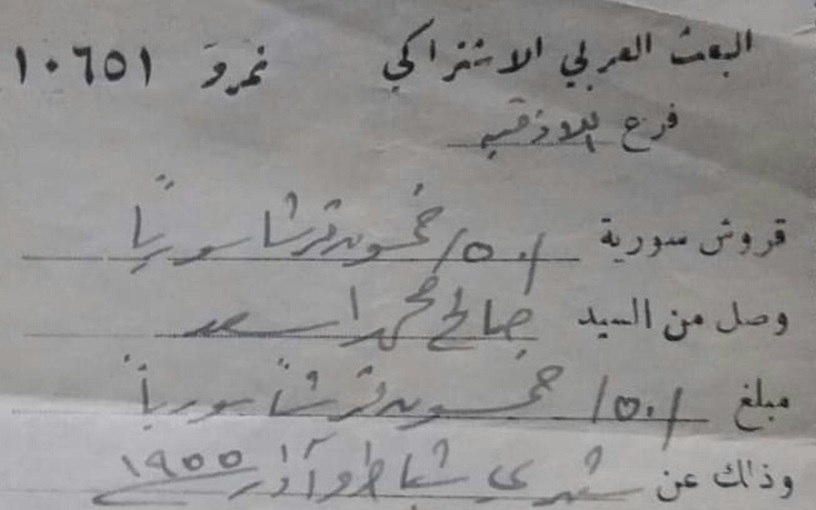 البعث العربي الاشتراكي نمرو ١٠٦٥١
فرع اللاذقيه
قروش سورية /٥٠/ خمسون قرشا سوريا
وصل من السيد صالح محمد اسعد
مبلغ /٥٠/ خمسون قرشاً سورياً
وذلك عن شهري شباط وآذار ١٩٥٥